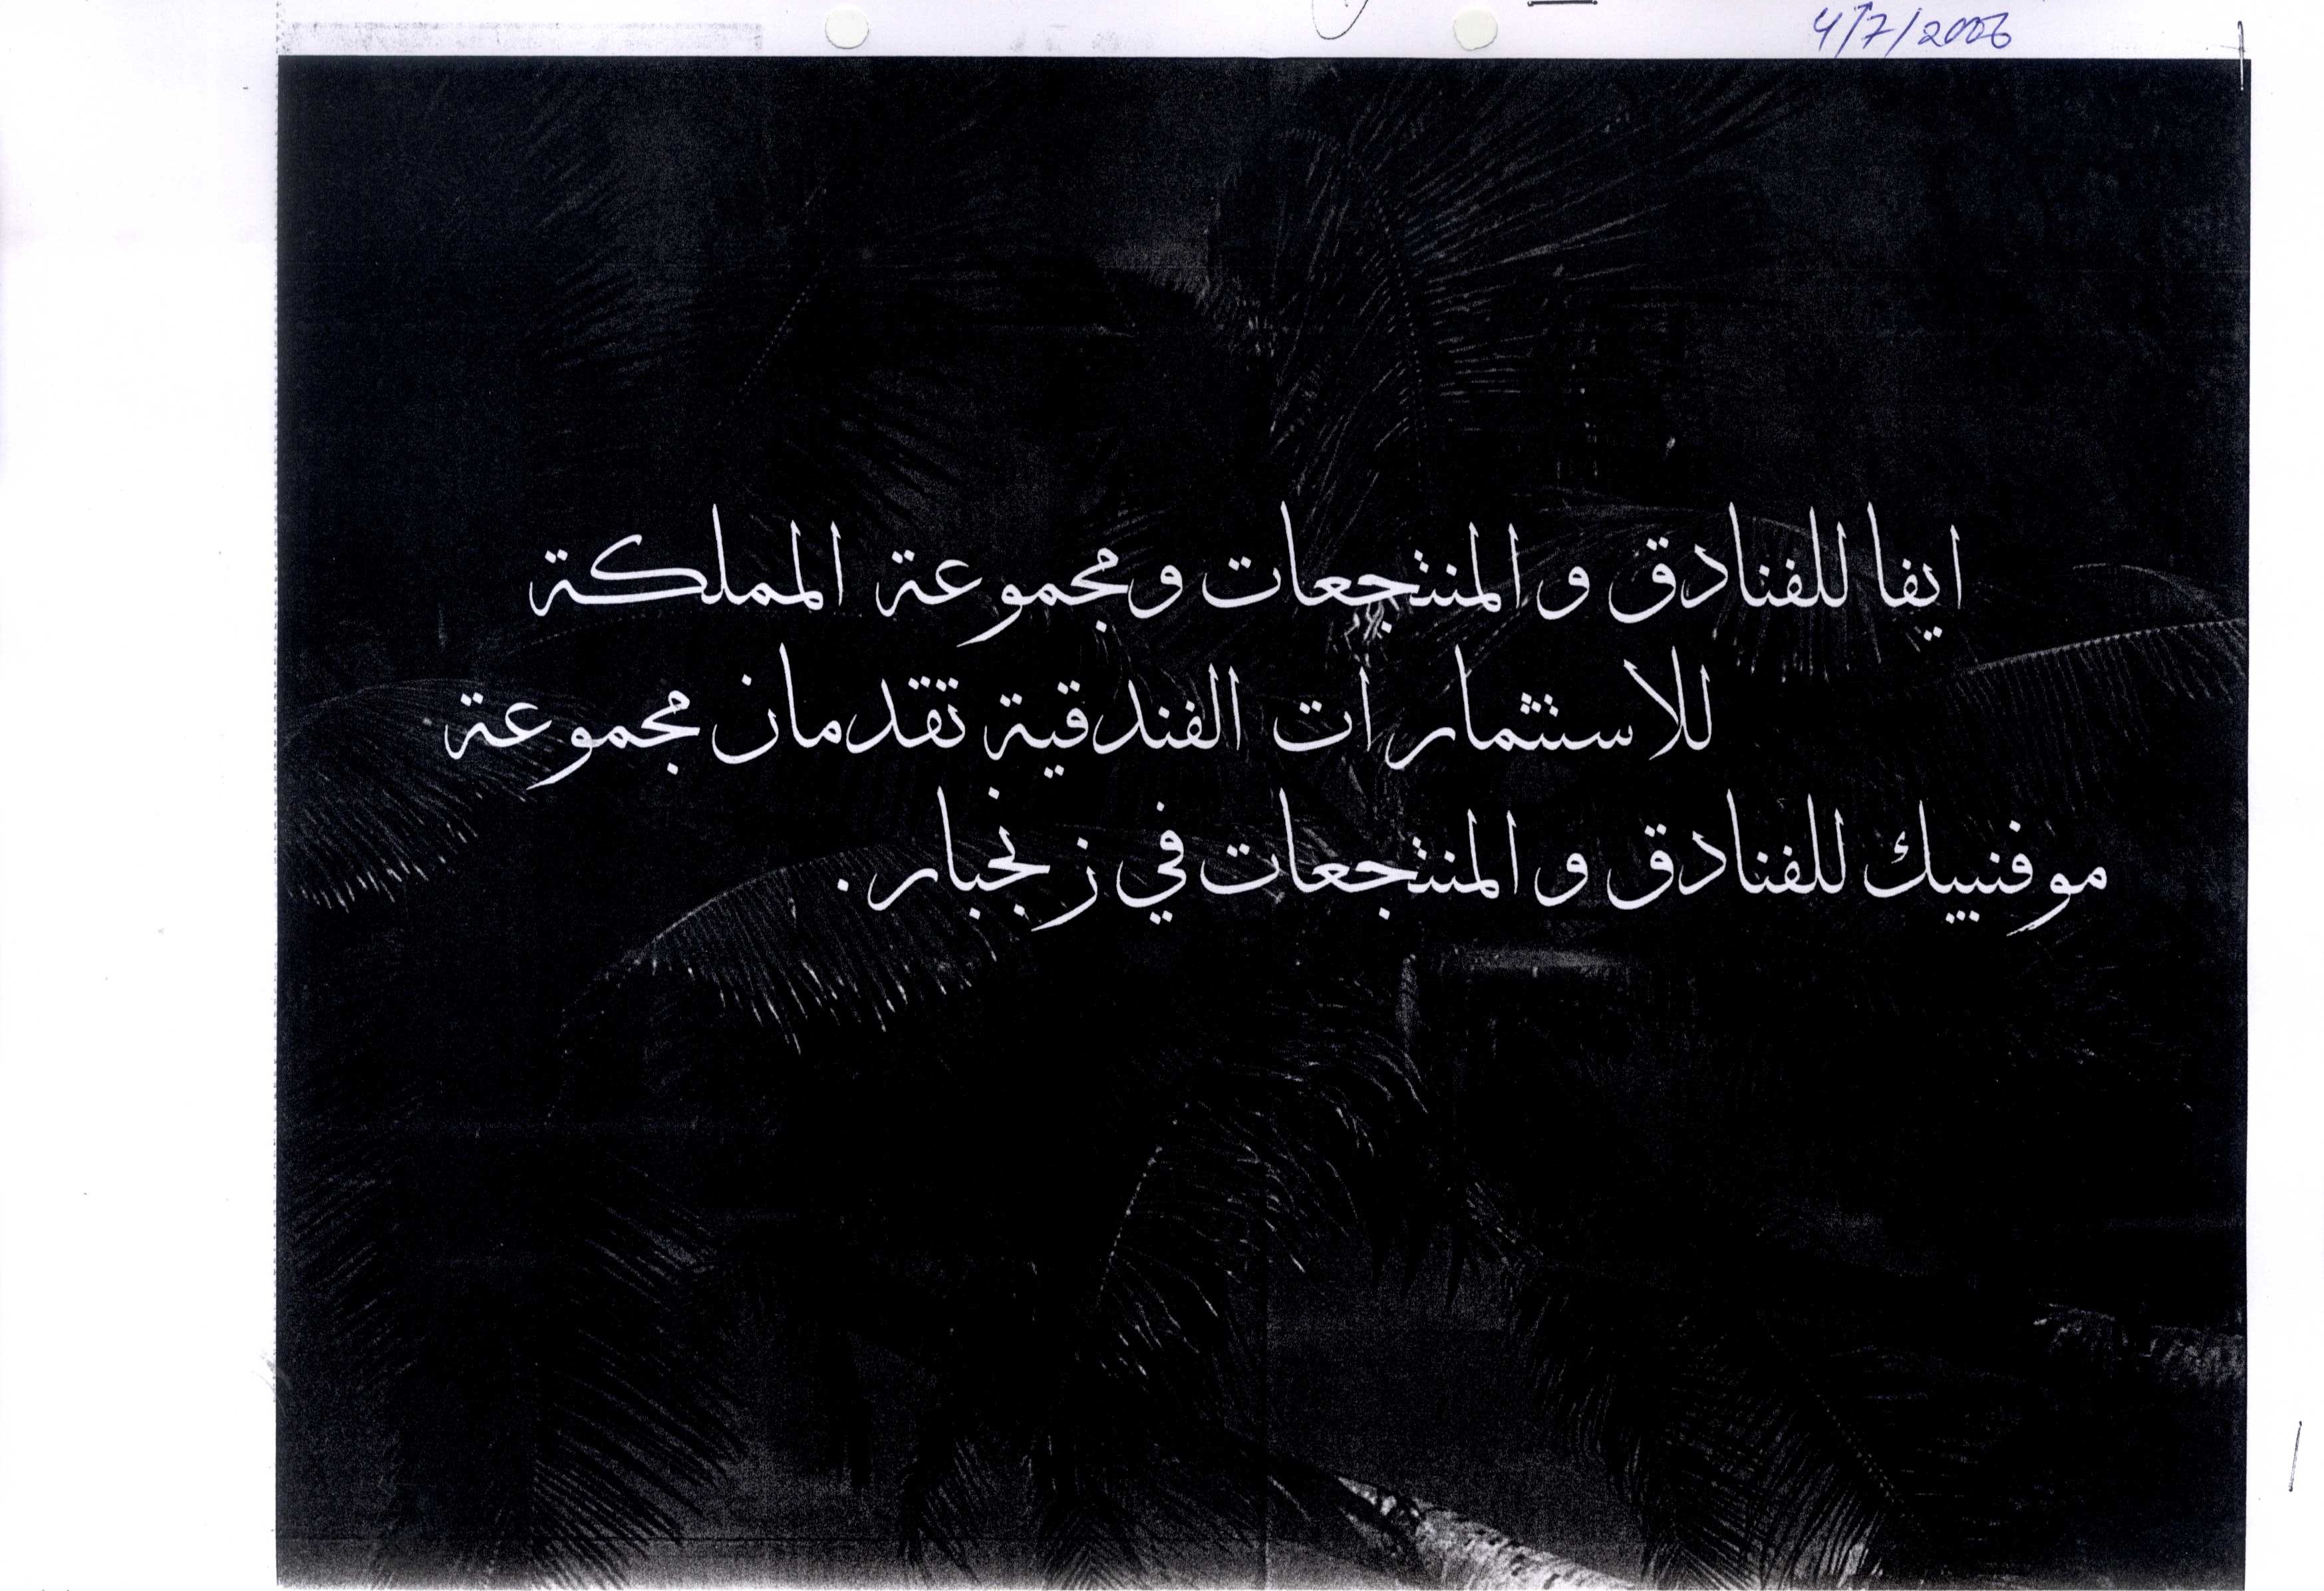 4/7/2006
ايفا للفنادق و المنتجعات ومجموعة المملكة
للاستثمارات الفندقية تقدمان مجموعة
موفنبيك للفنادق و المنتجعات في زنجبار.